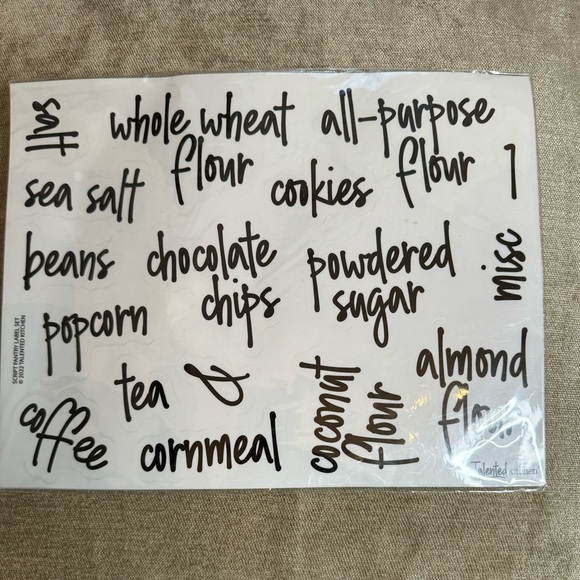 salt
whole wheat
flour
all-purpose
flour
sea salt
cookies
beans
chocolate
chips
powdered
sugar
misc
popcorn
SCRIPT PANTRY LABEL SET
© 2022 TALENTED KITCHEN
tea
&
coconut
flour
almond
flour
coffee
cornmeal
Talented Kitchen